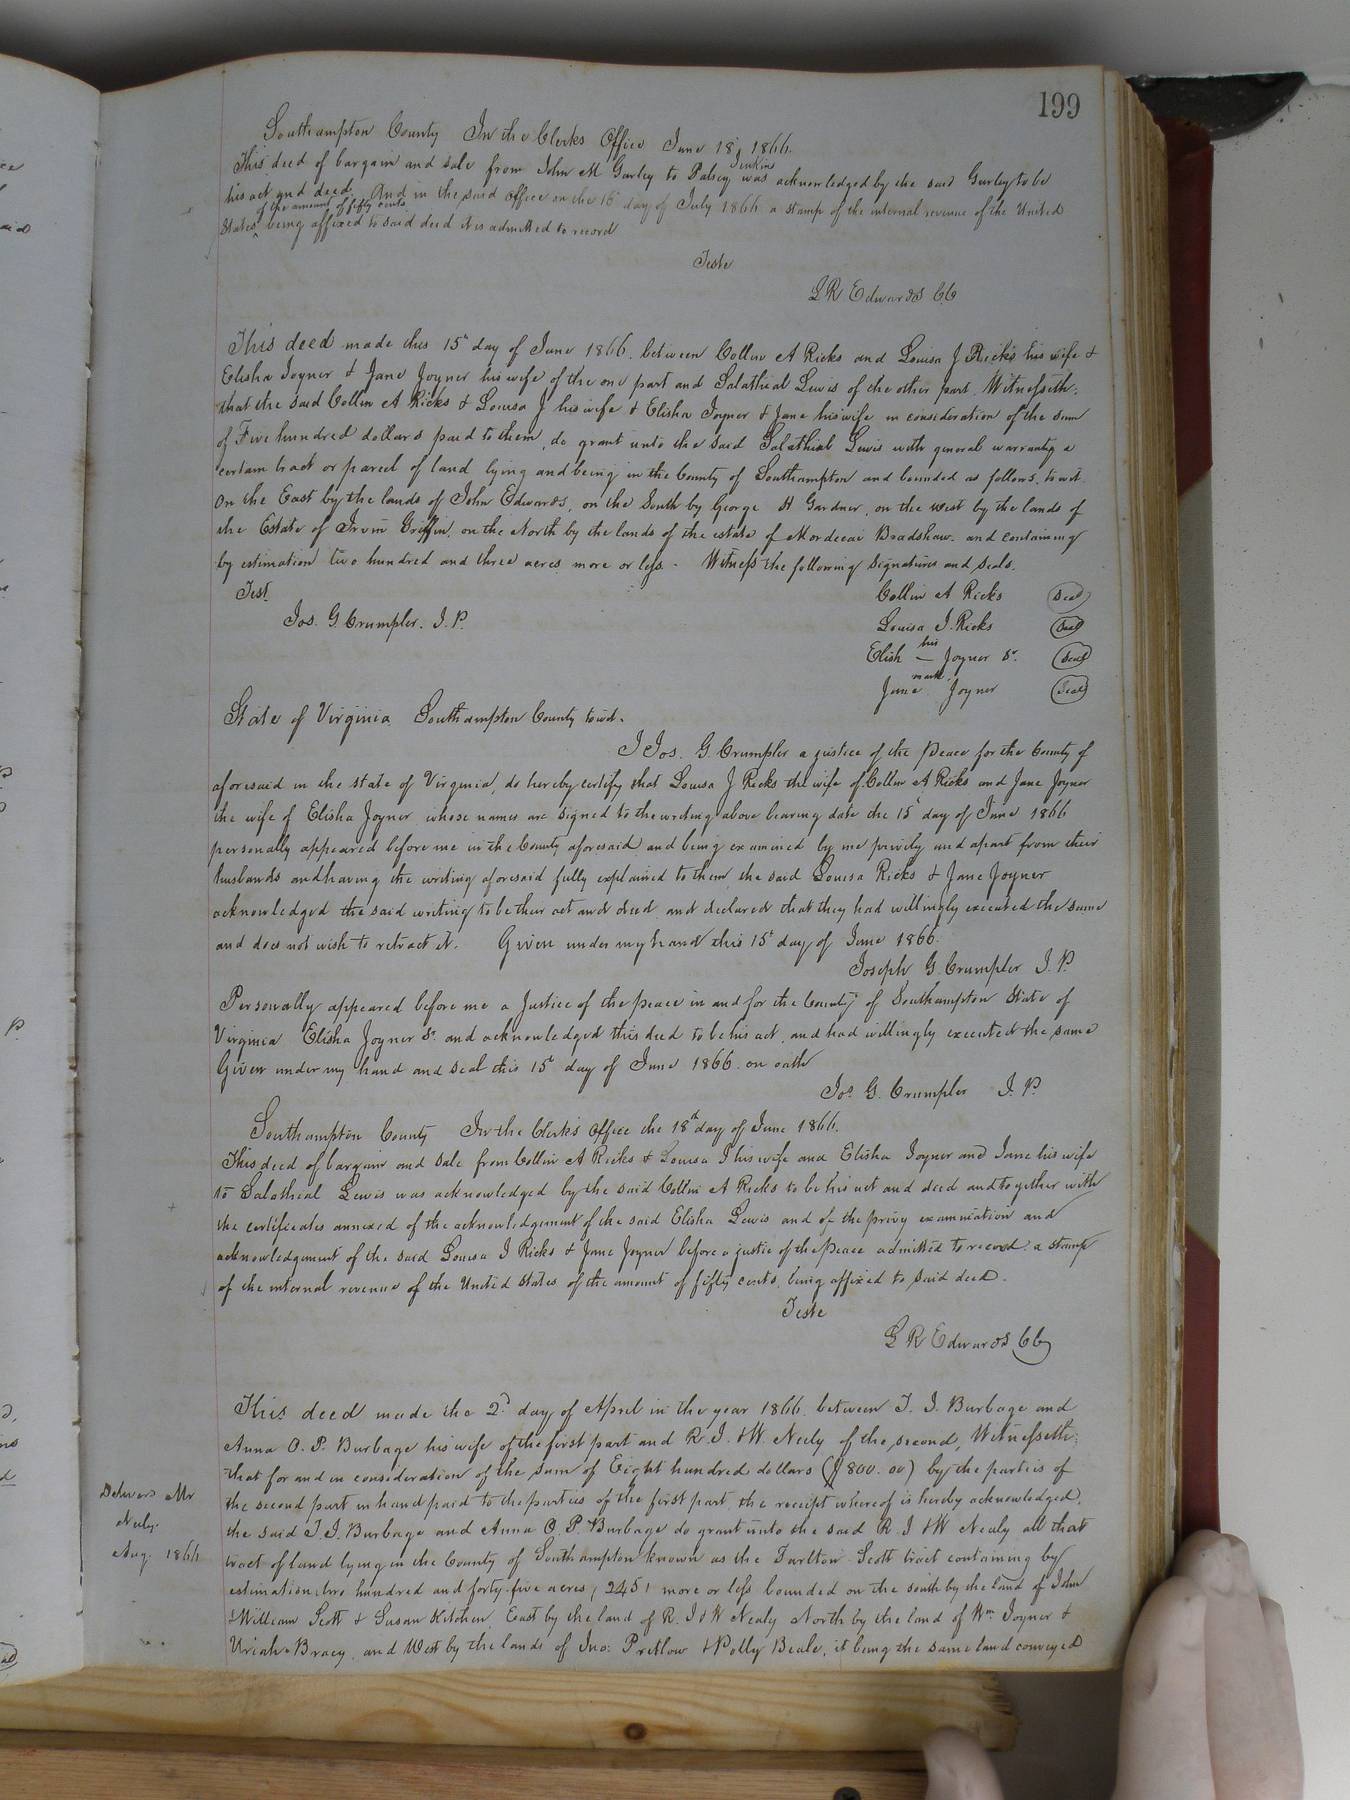 199
Southampton County In the Clerks Office June 18, 1866.
This deed of bargain and sale from John M Gurley to Patsey Jenkins was acknowledged by the said Gurley to be
his act and deed. And in the said office on the 16 day of July 1866 a stamp of the internal revenue of the United
States of the amount of fifty cents being affixed to said deed it is admitted to record
Teste
L R Edwards CC
This deed made this 15th day of June 1866. between Collin A Ricks and Louisa J Ricks his wife &
Elisha Joyner & Jane Joyner his wife of the one part and Salathial Lewis of the other part. Witnesseth.
that the said Collin A Ricks & Louisa J his wife & Elisha Joyner & Jane his wife in consideration of the sum
of Five hundred dollars paid to them, do grant unto the said Salathial Lewis with general warranty a
certain tract or parcel of land lying and being in the County of Southampton and bounded as follows, to wit.
On the East by the lands of John Edwards, on the South by George H Gardner, on the West by the lands of
the Estate of Irvin Griffin, on the North by the lands of the estate of Mordecai Bradshaw. and containing
by estimation two hundred and three acres more or less. Witness the following signatures and seals.
Test.
Collin A Ricks Seal
Jos. G. Crumpler. J. P.
Louisa J. Ricks Seal
Elish his mark Joyner Sr. Seal
Jane Joyner Seal
State of Virginia Southampton County towit.
I Jos. G Crumpler a justice of the Peace for the County of
aforesaid in the state of Virginia, do hereby certify that Louisa J Ricks the wife of Collin A Ricks and Jane Joyner
the wife of Elisha Joyner whose names are signed to the writing above bearing date the 15th day of June 1866
personally appeared before me in the County aforesaid and being examined by me privily and apart from their
husbands and having the writing aforesaid fully explained to them, the said Louisa Ricks & Jane Joyner
acknowledged the said writing to be their act and deed and declared that they had willingly executed the same
and does not wish to retract it. Given under my hand this 15th day of June 1866.
Joseph G. Crumpler J. P.
Personally appeared before me a Justice of the peace in and for the County of Southampton State of
Virginia Elisha Joyner Sr. and acknowledged this deed to be his act, and had willingly executed the same
Given under my hand and seal this 15th day of June 1866. on oath
Jos. G. Crumpler J. P.
Southampton County In the Clerk's Office the 18th day of June 1866.
This deed of bargain and sale from Collin A Ricks & Louisa J his wife and Elisha Joyner and Jane his wife
to Salathial Lewis was acknowledged by the said Collin A Ricks to be his act and deed and together with
the certificates annexed of the acknowledgement of the said Elisha Lewis and of the privy examination and
acknowledgement of the said Louisa J Ricks & Jane Joyner before a justic of the Peace admitted to record. a stamp
of the internal revenue of the United States of the amount of fifty cents, being affixed to said deed.
Teste
L R Edwards CC
This deed made the 2d day of April in the year 1866. between T. J. Burbage and
Anna O. P. Burbage his wife of the first part and R. J. & W. Neely of the second, Witnesseth;
that for and in consideration of the sum of Eight hundred dollars ($800.00) by the parties of
the second part in hand paid to the parties of the first part, the receipt whereof is hereby acknowledged.
the said T. J. Burbage and Anna O. P. Burbage do grant unto the said R. J & W Nealy all that
tract of land lying in the County of Southampton known as the Tarlton Scott tract containing by
estimation two hundred and forty-five acres, 245, more or less bounded on the south by the land of John
& William Scott & Susan Kitchen, East by the land of R. J & W Nealy North by the land of Wm Joyner &
Uriah Bracy, and West by the lands of Jno: Pretlow & Polly Beale, it being the same land conveyed
Delivers Mr
Nealy.
Aug. 1866